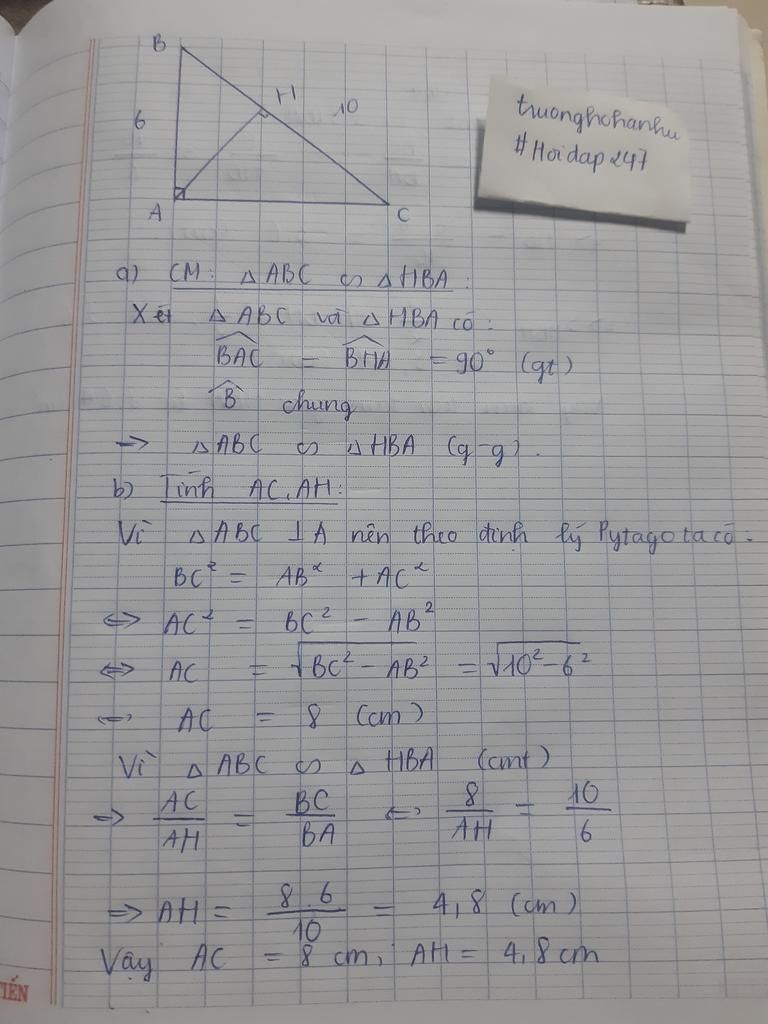 B
H
6
10
A
C
truonghohanhu
#Hoidap247
a) CM: △ABC ∽ △HBA:
Xét △ABC và △HBA có:
BAC = BHA = 90° (gt)
B chung
=> △ABC ∽ △HBA (g-g).
b) Tính AC, AH:
Vì △ABC ⊥A nên theo định lý Pytago ta có.
BC² = AB² + AC²
<=> AC² = BC² - AB²
<=> AC = √BC² - AB² = √10² - 6²
<=> AC = 8 (cm)
Vì △ABC ∽ △HBA (cmt)
=> AC/AH = BC/BA <=> 8/AH = 10/6
=> AH = 8.6/10 = 4,8 (cm)
Vậy AC = 8 cm, AH = 4,8 cm
TIẾN